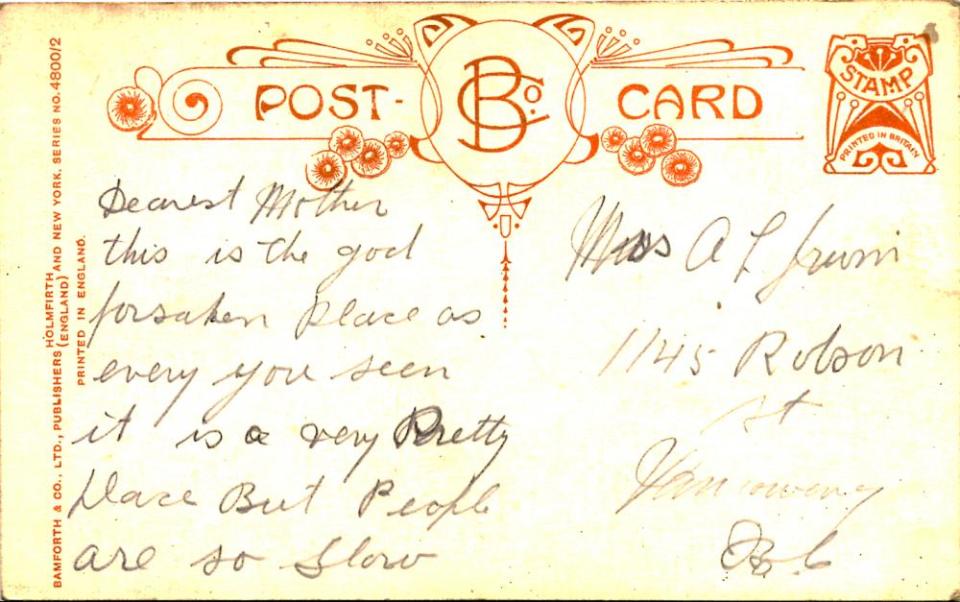 POST-
BCo.
CARD
STAMP
PRINTED IN BRITAIN
BAMFORTH & CO., LTD., PUBLISHERS HOLMFIRTH (ENGLAND) AND NEW YORK. SERIES NO. 4800/2
PRINTED IN ENGLAND.
Dearest Mother
this is the god
forsaken place as
every you seen
it is a very Pretty
place But People
are so slow
A L
1145 Robson
st
B.C